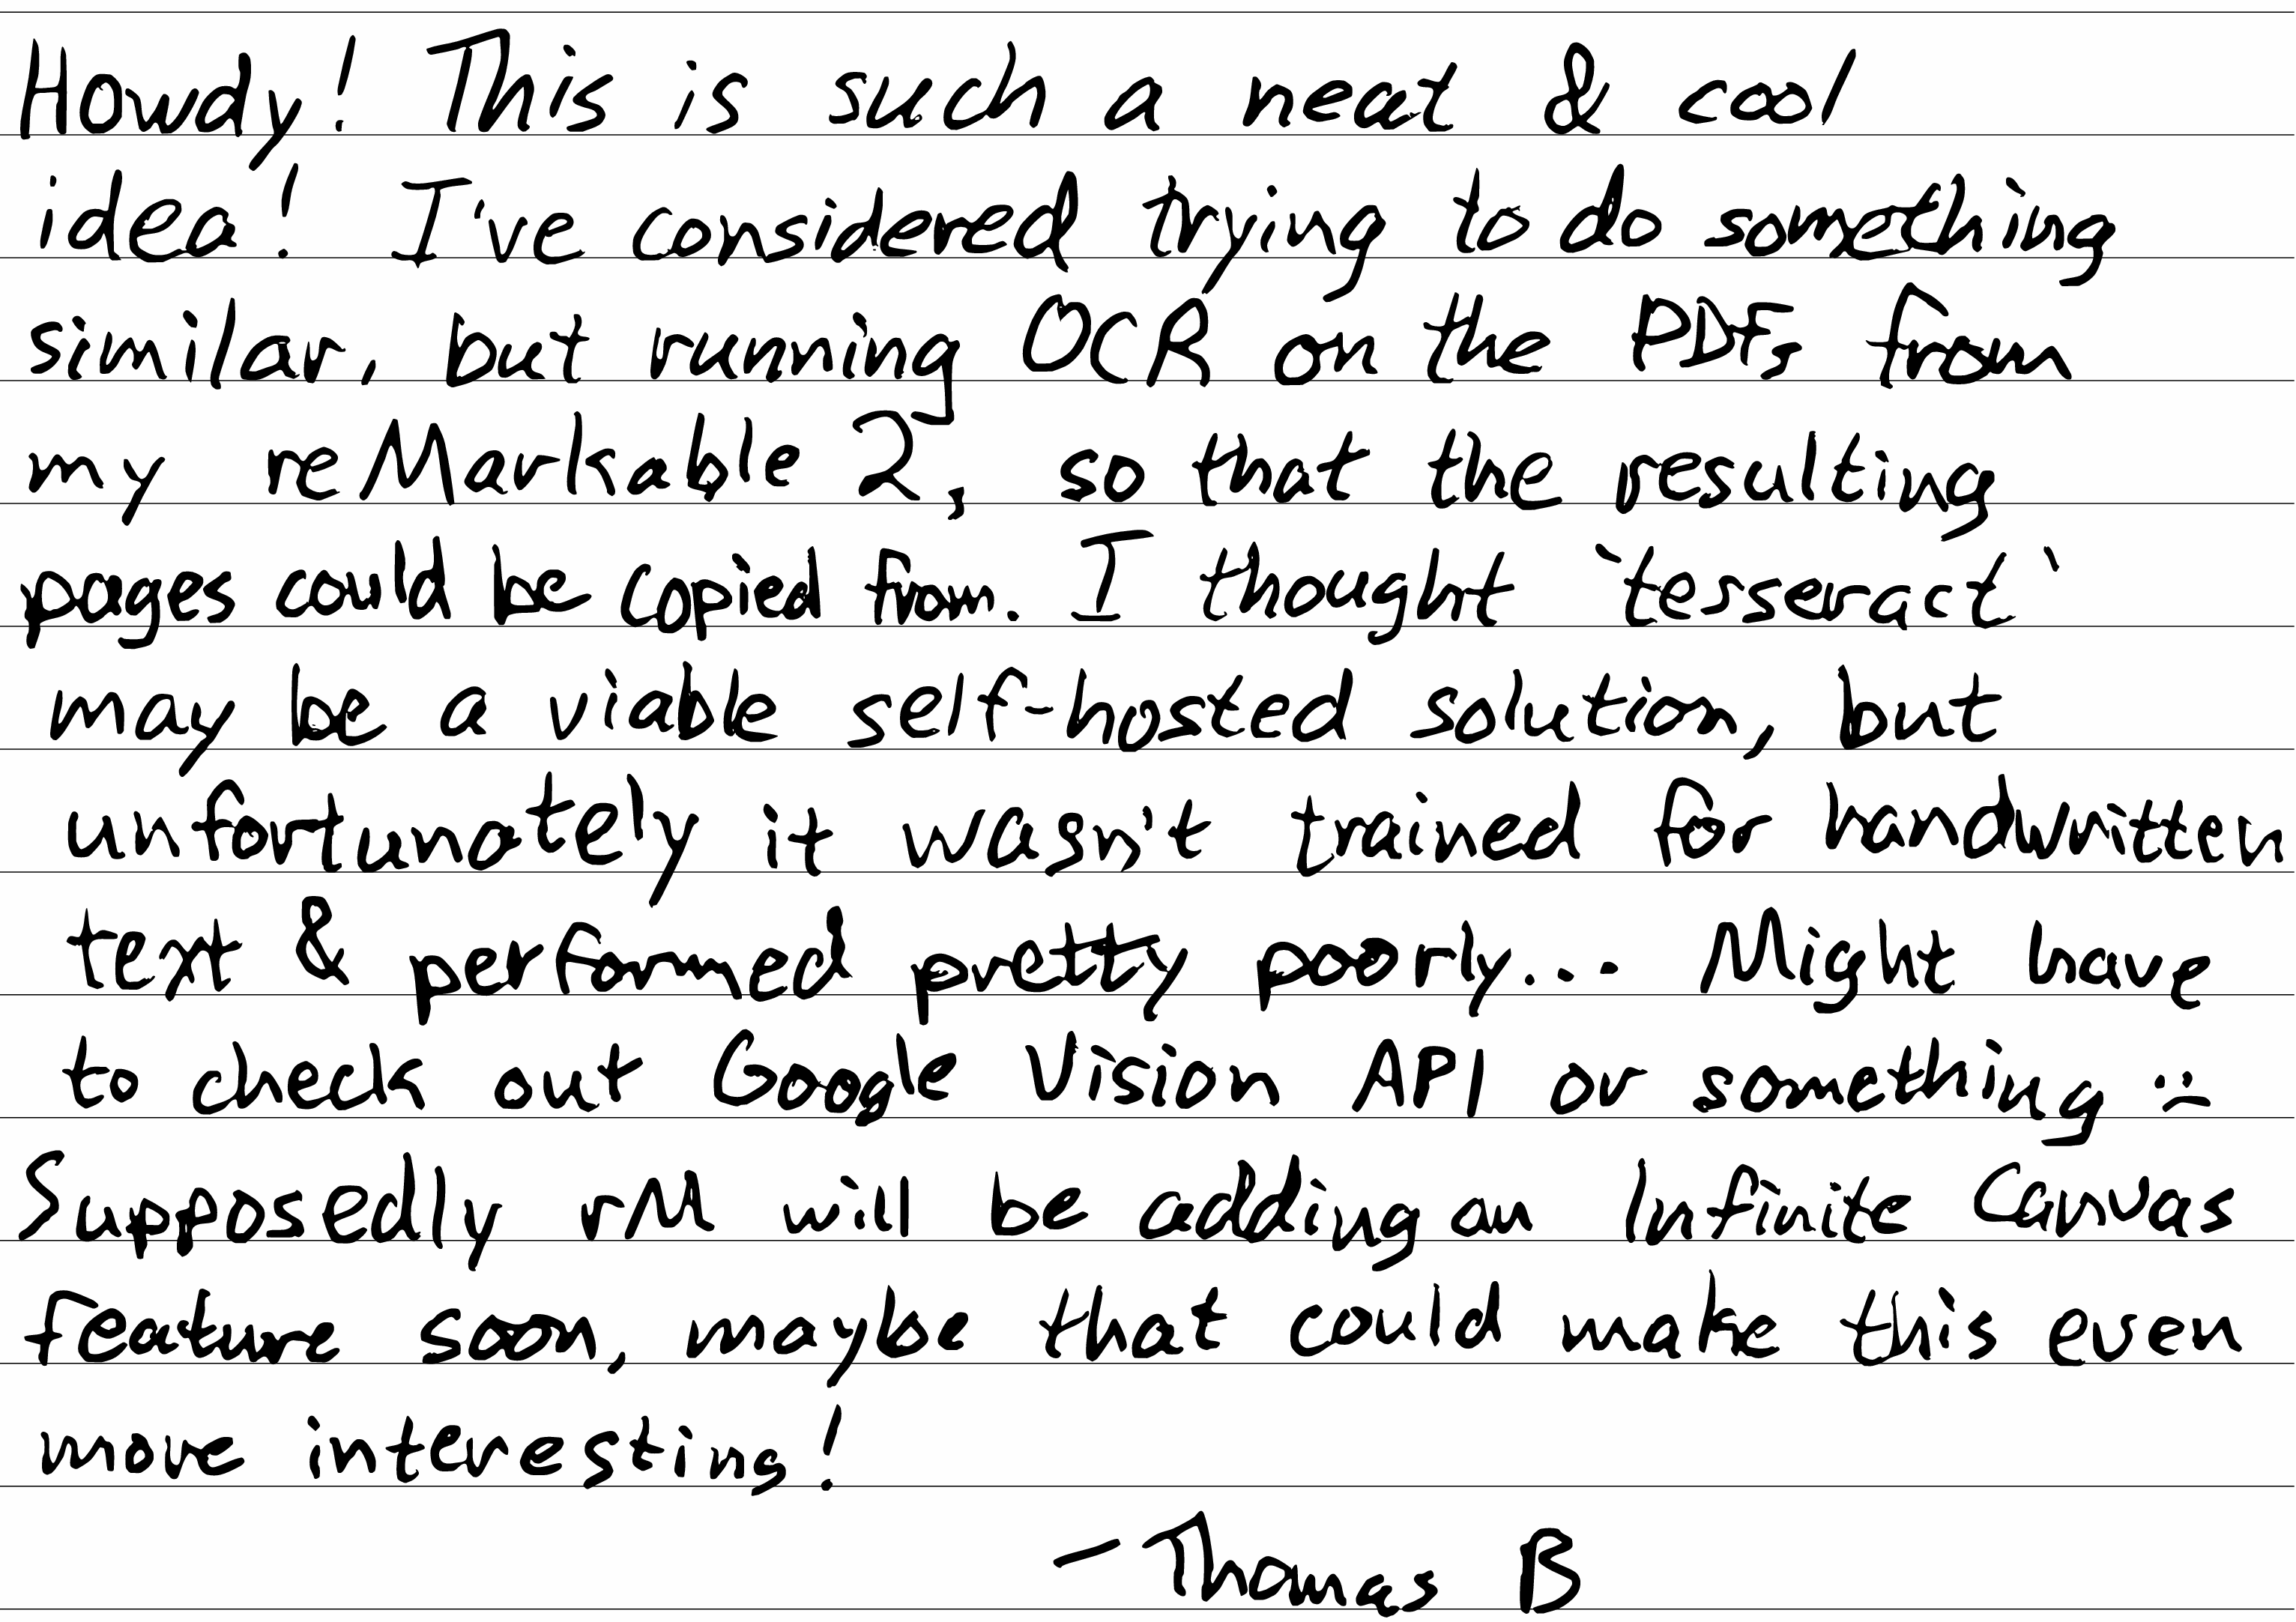 Howdy! This is such a neat & cool
idea! I've considered trying to do something
similar, but running OCR on the PDFs from
my reMarkable 2, so that the resulting
pages could be copied from. I thought `tesseract`
may be a viable self-hosted solution, but
unfortunately it wasn't trained for handwritten
text & performed pretty poorly... Might have
to check out Google Vision API or something :)
Supposedly rM will be adding an Infinite Canvas
feature soon, maybe that could make this even
more interesting!
- Thomas B